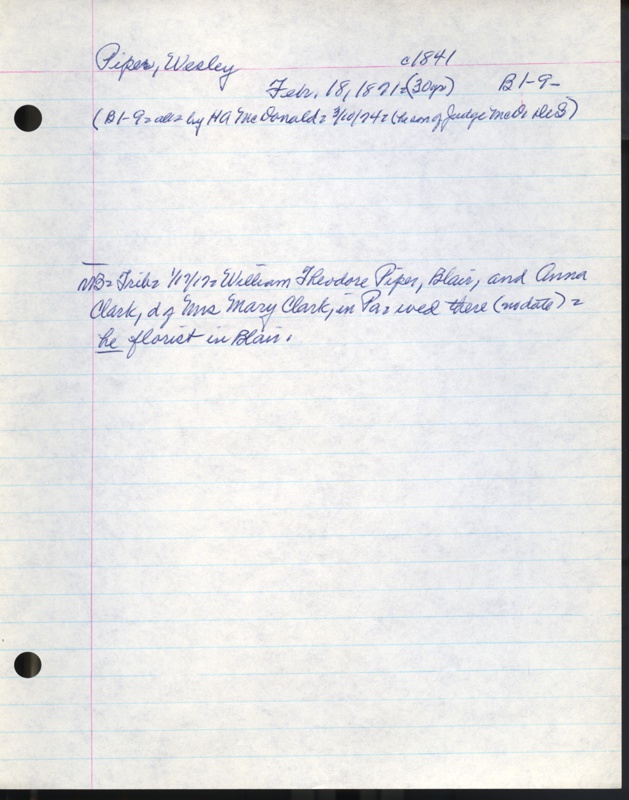 Piper, Wesley c1841
Feb. 18, 1871=(30yr) B1-9-
(B1-9= all= by HA McDonald= 3/10/74= (he son of Judge McD= DeS)
NB= Trib= 1/17/17= William Theodore Piper, Blair, and Anna
Clark, d of Mrs Mary Clark, in Pa= wed there (no date) =
he florist in Blair.